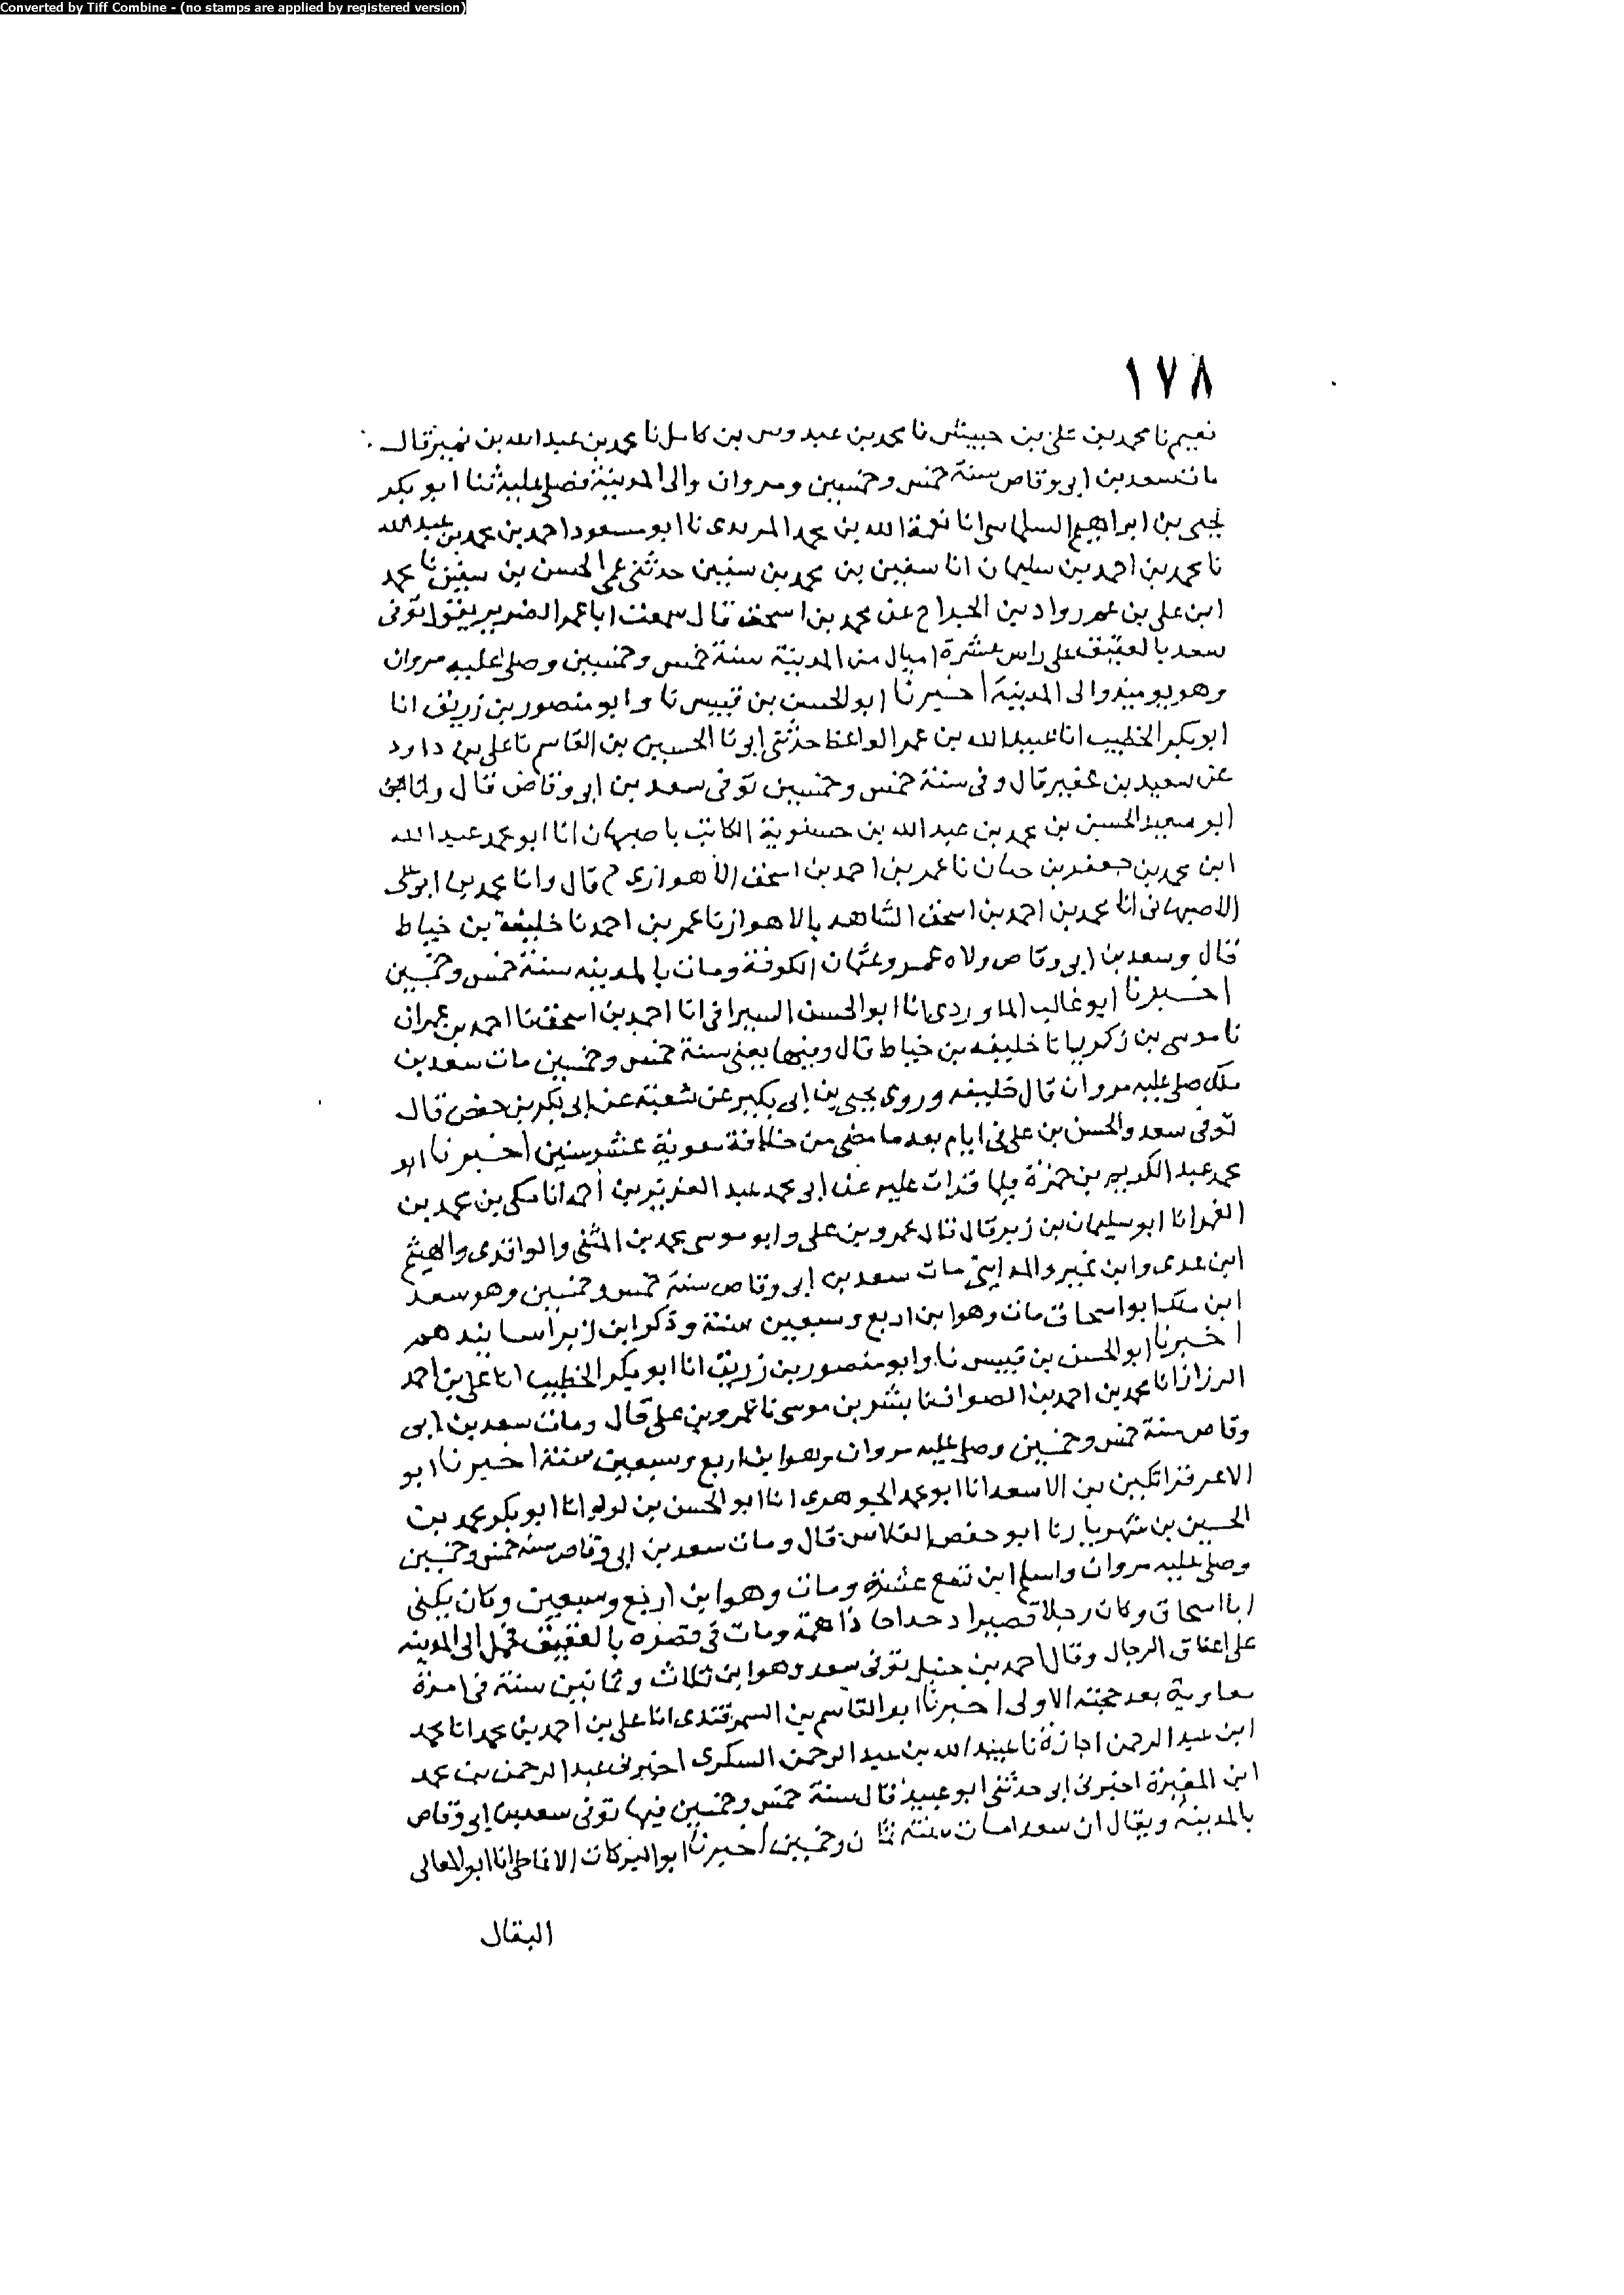 Converted by Tiff Combine - (no stamps are applied by registered version)
١٧٨
نعيم نا محمد بن على بن حبيش نا محمد بن عبدوس بن كامل نا محمد بن عبدالله بن نمير قال
مات سعد بن ابى وقاص سنة خمس وخمسين ومروان والى المدينة فصلى عليه ثنا ابو بكر
يحيى بن ابراهيم السلماسى انا نعمة الله بن محمد المرندى نا ابو مسعود احمد بن محمد بن عبد الله
نا محمد بن احمد بن سليمان انا سفين بن محمد بن سفين حدثنى عمى الحسن بن سفين نا محمد
ابن على بن عمر رواد بن الجراح عن محمد بن اسحق قال سمعت ابا عمر الضرير يقول توفى
سعد بالعقيق على راس عشرة اميال من المدينة سنة خمس وخمسين وصلى عليه مروان
وهو يوميذ والى المدينة اخبرنا ابو الحسن بن قبيس نا وابو منصور بن زريق انا
ابو بكر الخطيب انا عبيد الله بن عمر الواعظ حدثنى ابى نا الحسين بن القاسم نا على بن داود
عن سعيد بن عفير قال وفى سنة خمس وخمسين توفى سعد بن ابى وقاص قال وانا
ابو سعيد الحسن بن محمد بن عبد الله بن حسنوية الكاتب باصبهان انا ابو محمد عبد الله
ابن محمد بن جعفر بن حيان نا عمر بن احمد بن اسحق الاهوازى ح قال وانا محمد بن ابى على
الاصبهانى انا محمد بن احمد بن اسحق الشاهد بالاهواز نا عمر بن احمد نا خليفة بن خياط
قال وسعد بن ابى وقاص ولاه عمر وعثمان الكوفة ومات بالمدينه سنة خمس وخمسين
اخبرنا ابو غالب الماوردى انا ابو الحسن السيرافى انا احمد بن اسحق نا احمد بن عمران
نا موسى بن زكريا نا خليفه بن خياط قال وفيها يعنى سنة خمس وخمسين مات سعد بن
ملك صلى عليه مروان قال خليفه وروى يحيى بن ابى بكير عن شعبة عن ابى بكر بن حفص قال
توفى سعد والحسن بن على فى ايام بعد ما مضى من خلافة معوية عشر سنين اخبرنا ابو
محمد عبد الكريم بن حمزة فيما قرات عليه عن ابى محمد عبد العزيز بن احمد انا مكى بن محمد بن
الغمر انا ابو سليمان بن زبر قال قال عمرو بن على وابو موسى محمد بن المثنى والواقدى والهيثم
ابن عدى وابن نمير والمداينى مات سعد بن ابى وقاص سنة خمس وخمسين وهو سعد
ابن ملك ابو اسحاق مات وهو ابن اربع وسبعين سنة وذكر ابن زبر اسانيدهم
اخبرنا ابو الحسن بن قبيس نا وابو منصور بن زريق انا ابو بكر الخطيب انا على بن احمد
الرزاز انا محمد بن احمد بن الصواف نا بشر بن موسى نا عمرو بن على قال ومات سعد بن ابى
وقاص سنة خمس وخمسين وصلى عليه مروان وهو ابن اربع وسبعين سنة اخبرنا ابو
الاعز قراتكين بن الاسعد انا ابو محمد الجوهرى انا ابو الحسن بن لولو انا ابو بكر محمد بن
الحسين بن شهريار نا ابو حفص الفلاس قال ومات سعد بن ابى وقاص سنه خمس وخمسين
وصلى عليه مروان واسلم ابن تسع عشرة ومات وهو ابن اربع وسبعين وكان يكنى
ابا اسحاق وكان رجلا قصيرا دحداحا ذا همة ومات فى قصره بالعقيق فحمل الى المدينه
على اعناق الرجال وقال احمد بن حنبل توفى سعد وهو ابن ثلاث وثمانين سنة فى امرة
معاوية بعد حجته الاولى اخبرنا ابو القاسم بن السمرقندى انا على بن احمد بن محمد انا محمد
ابن عبد الرحمن اجازة نا عبيد الله بن عبد الرحمن السكرى اخبرنى عبد الرحمن بن محمد
ابن المغيرة اخبرنى ابى حدثنى ابو عبيد قال سنة خمس وخمسين فيها توفى سعد بن ابى وقاص
بالمدينه ويقال ان سعدا مات سنة ثمان وخمسين اخبرنا ابو البركات الانماطى انا ابو المعالى
البقال